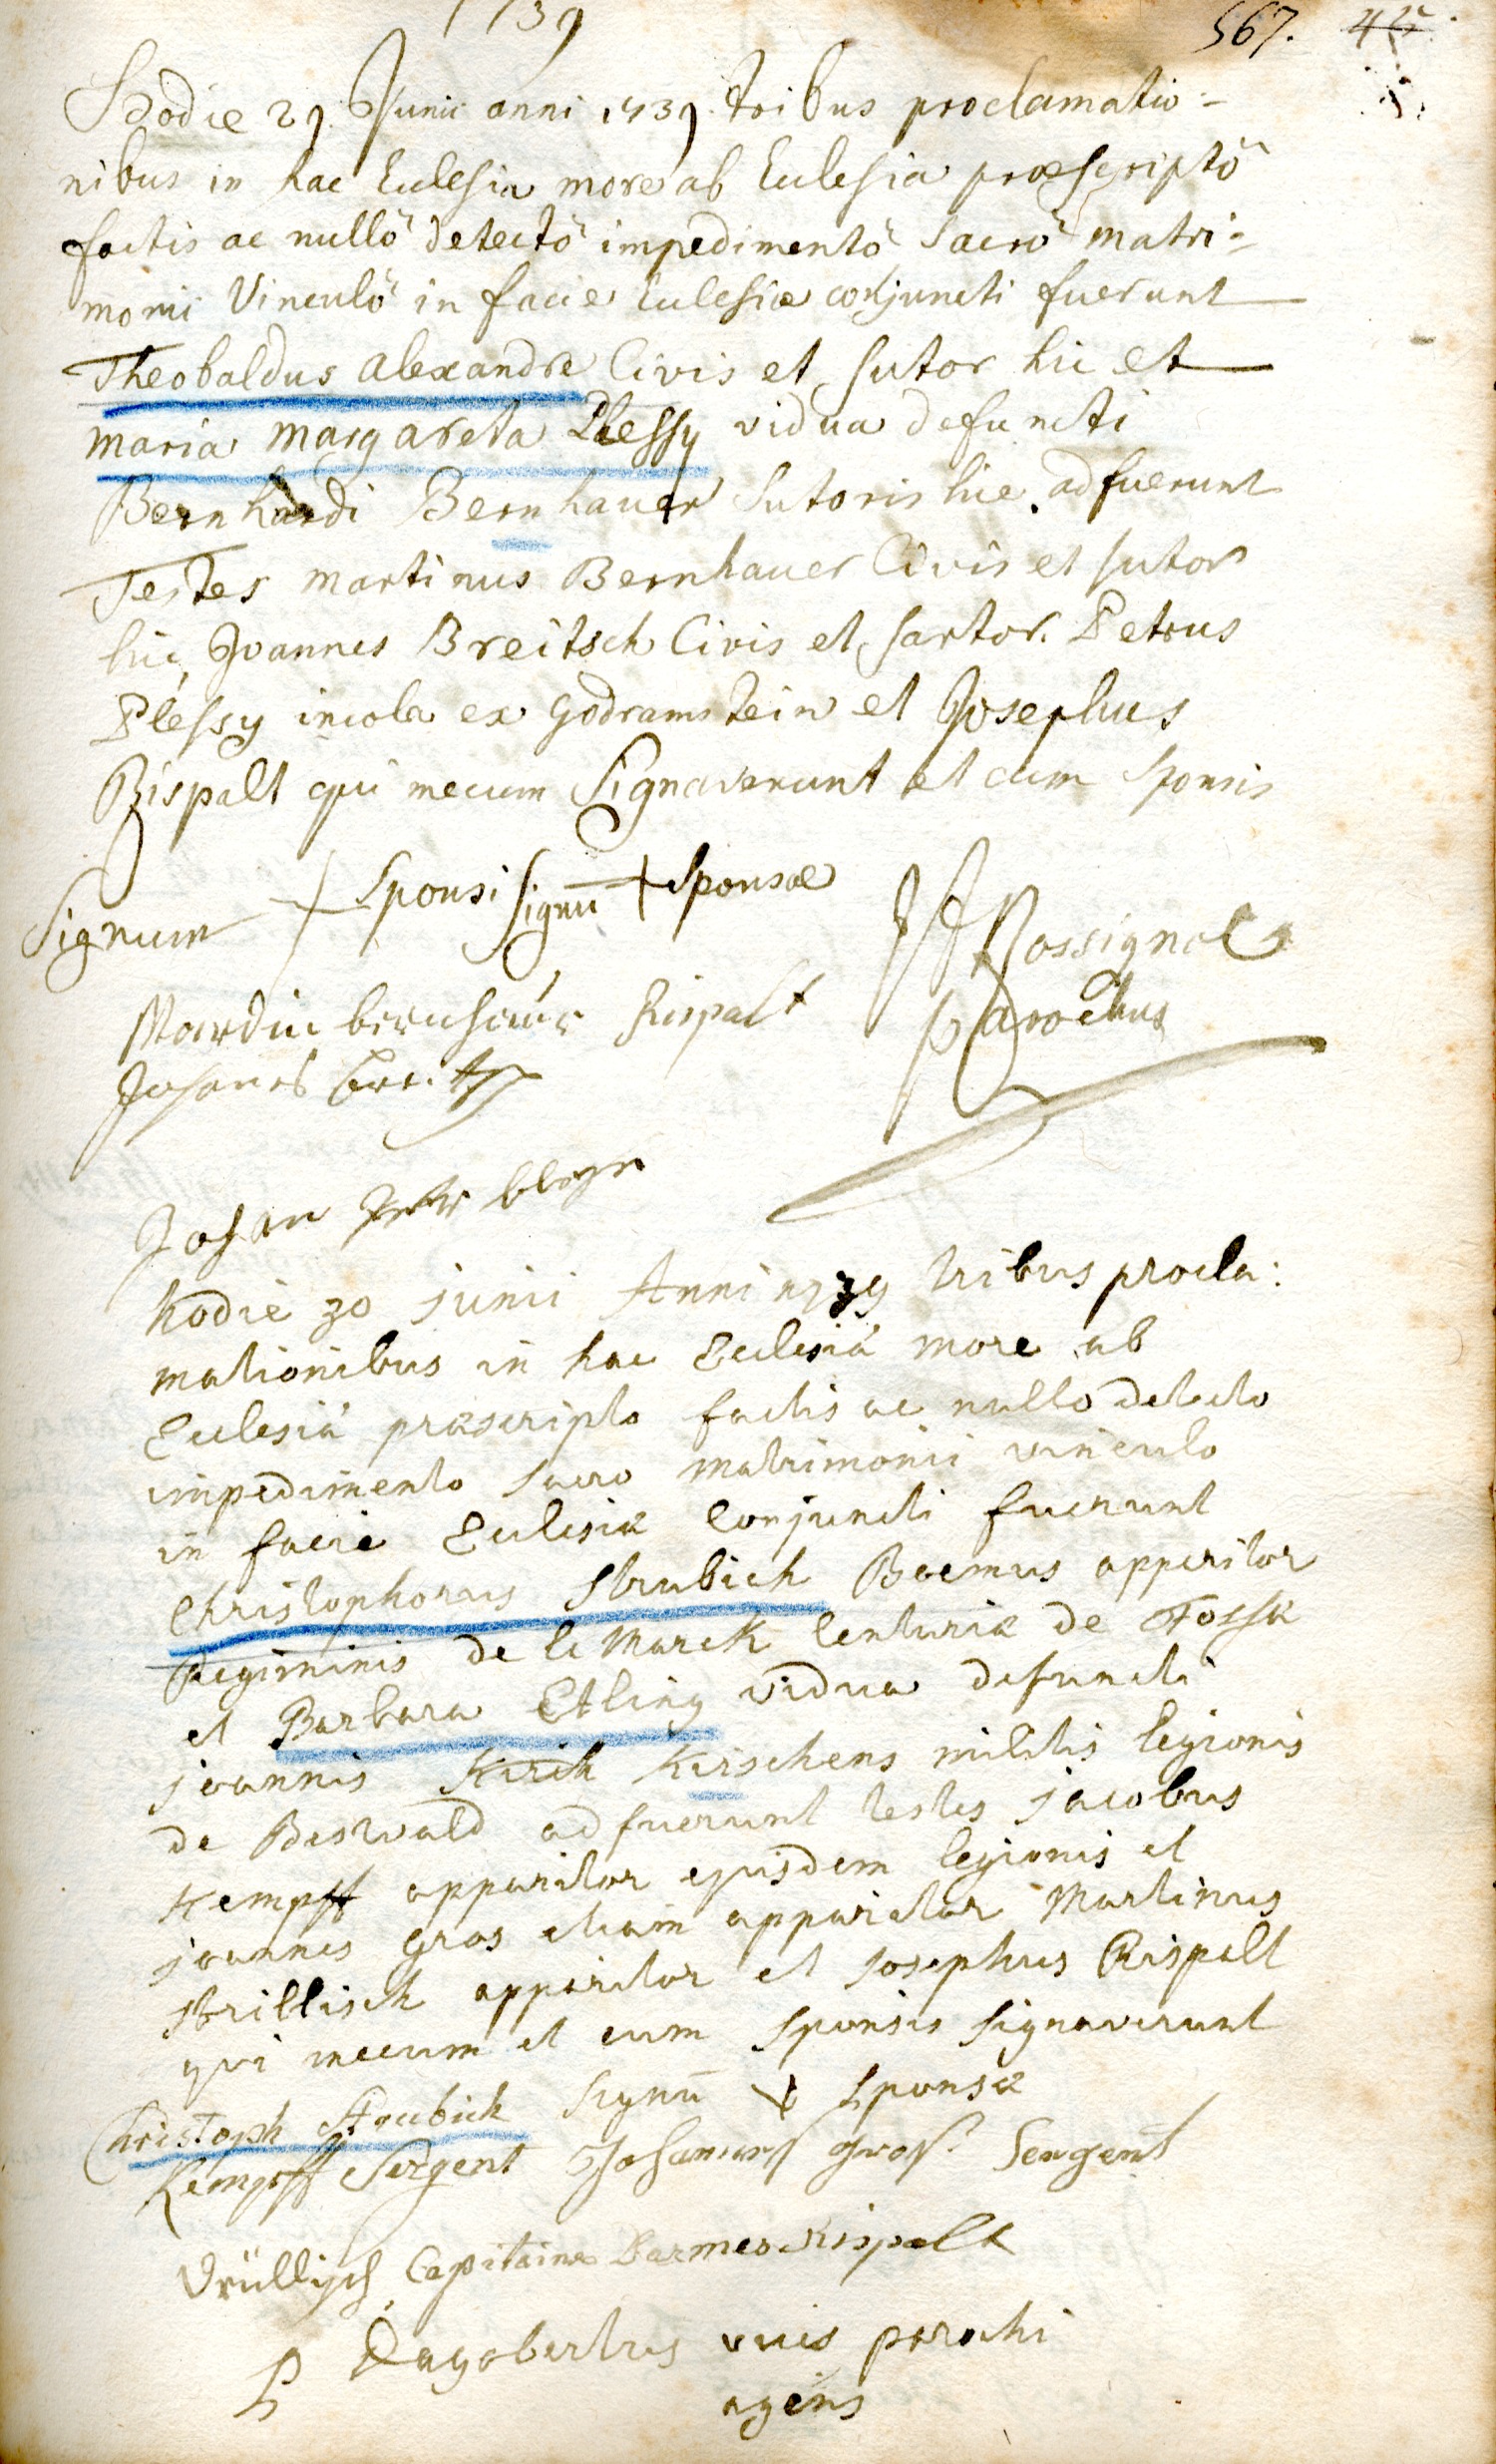 1739
567. 45.
Hodie 29. Junii anni 1739. tribus proclamatio=
nibus in hac Eclesia more ab Eclesia præscriptö
factis ac nullö detectö impedimentö sacrö matri=
monii Vinculö in facie Eclesiæ conjuncti fuerunt
Theobaldus alexandre Civis et sutor hic et
maria margareta Plessy vidua defuncti
Bernhardi Bernhauer Sutoris hic. adfuerunt
Testes martinus Bernhauer Civis et sutor
hic, Joannes Breitsch Civis et sartor. Petrus
Plessy incola ex godramstein et Josephus
Rispalt qui mecum signaverunt et cum sponsis
Signum + Sponsi Signū + Sponsæ
Rossignol
Mardin bernhauer Rispalt parochus
Johanes breitsch
Johan
hodie 30 junii Anni 1739 tribus procla:
mationibus in hac Eclesiá more ab
Eclesiá præscripto factis ac nullo detecto
impedimento sacro matrimonii vinculo
in facie Eclesiæ conjuncti fuerunt
Christophorus Strubich Boemus apparitor
Regiminis de la Marck Centuriæ de Fossa
et Barbara Etling vidua defuncti
joannis Kirch Kirschens militis legionis
de Beswald adfuerunt testes jacobus
Kempff apparitor ejusdem legionis et
joannes gros etiam apparitor Martinus
strillisch apparitor et josephus Rispalt
qui mecum et cum sponsis signaverunt
Christoph Strubich Signū + sponsæ
Kempff Sergent Johannes gros Sergent
Capitaine Darmes Rispalt
P Dagobertus vices parochi
agens